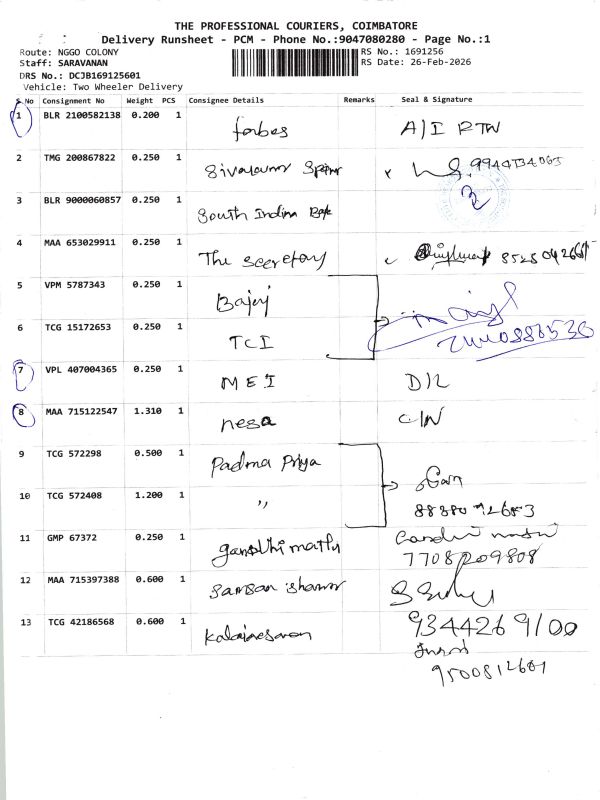 THE PROFESSIONAL COURIERS, COIMBATORE
Delivery Runsheet - PCM - Phone No.:9047080280 - Page No.:1
Route: NGGO COLONY
RS No.: 1691256
Staff: SARAVANAN
RS Date: 26-Feb-2026
DRS No.: DCJB169125601
Vehicle: Two Wheeler Delivery
S No Consignment No Weight PCS Consignee Details Remarks Seal & Signature
1 BLR 2100582138 0.200 1 forbes A/I RTW
2 TMG 200867822 0.250 1
3 BLR 9000060857 0.250 1 South Indian
4 MAA 653029911 0.250 1 The Secretary
5 VPM 5787343 0.250 1 Bajaj
6 TCG 15172653 0.250 1 TCI
7 VPL 407004365 0.250 1 MEI D/L
8 MAA 715122547 1.310 1 nesa C/N
9 TCG 572298 0.500 1 Padma Priya
10 TCG 572408 1.200 1 "
11 GMP 67372 0.250 1
7708209808
12 MAA 715397388 0.600 1
13 TCG 42186568 0.600 1 9344269100